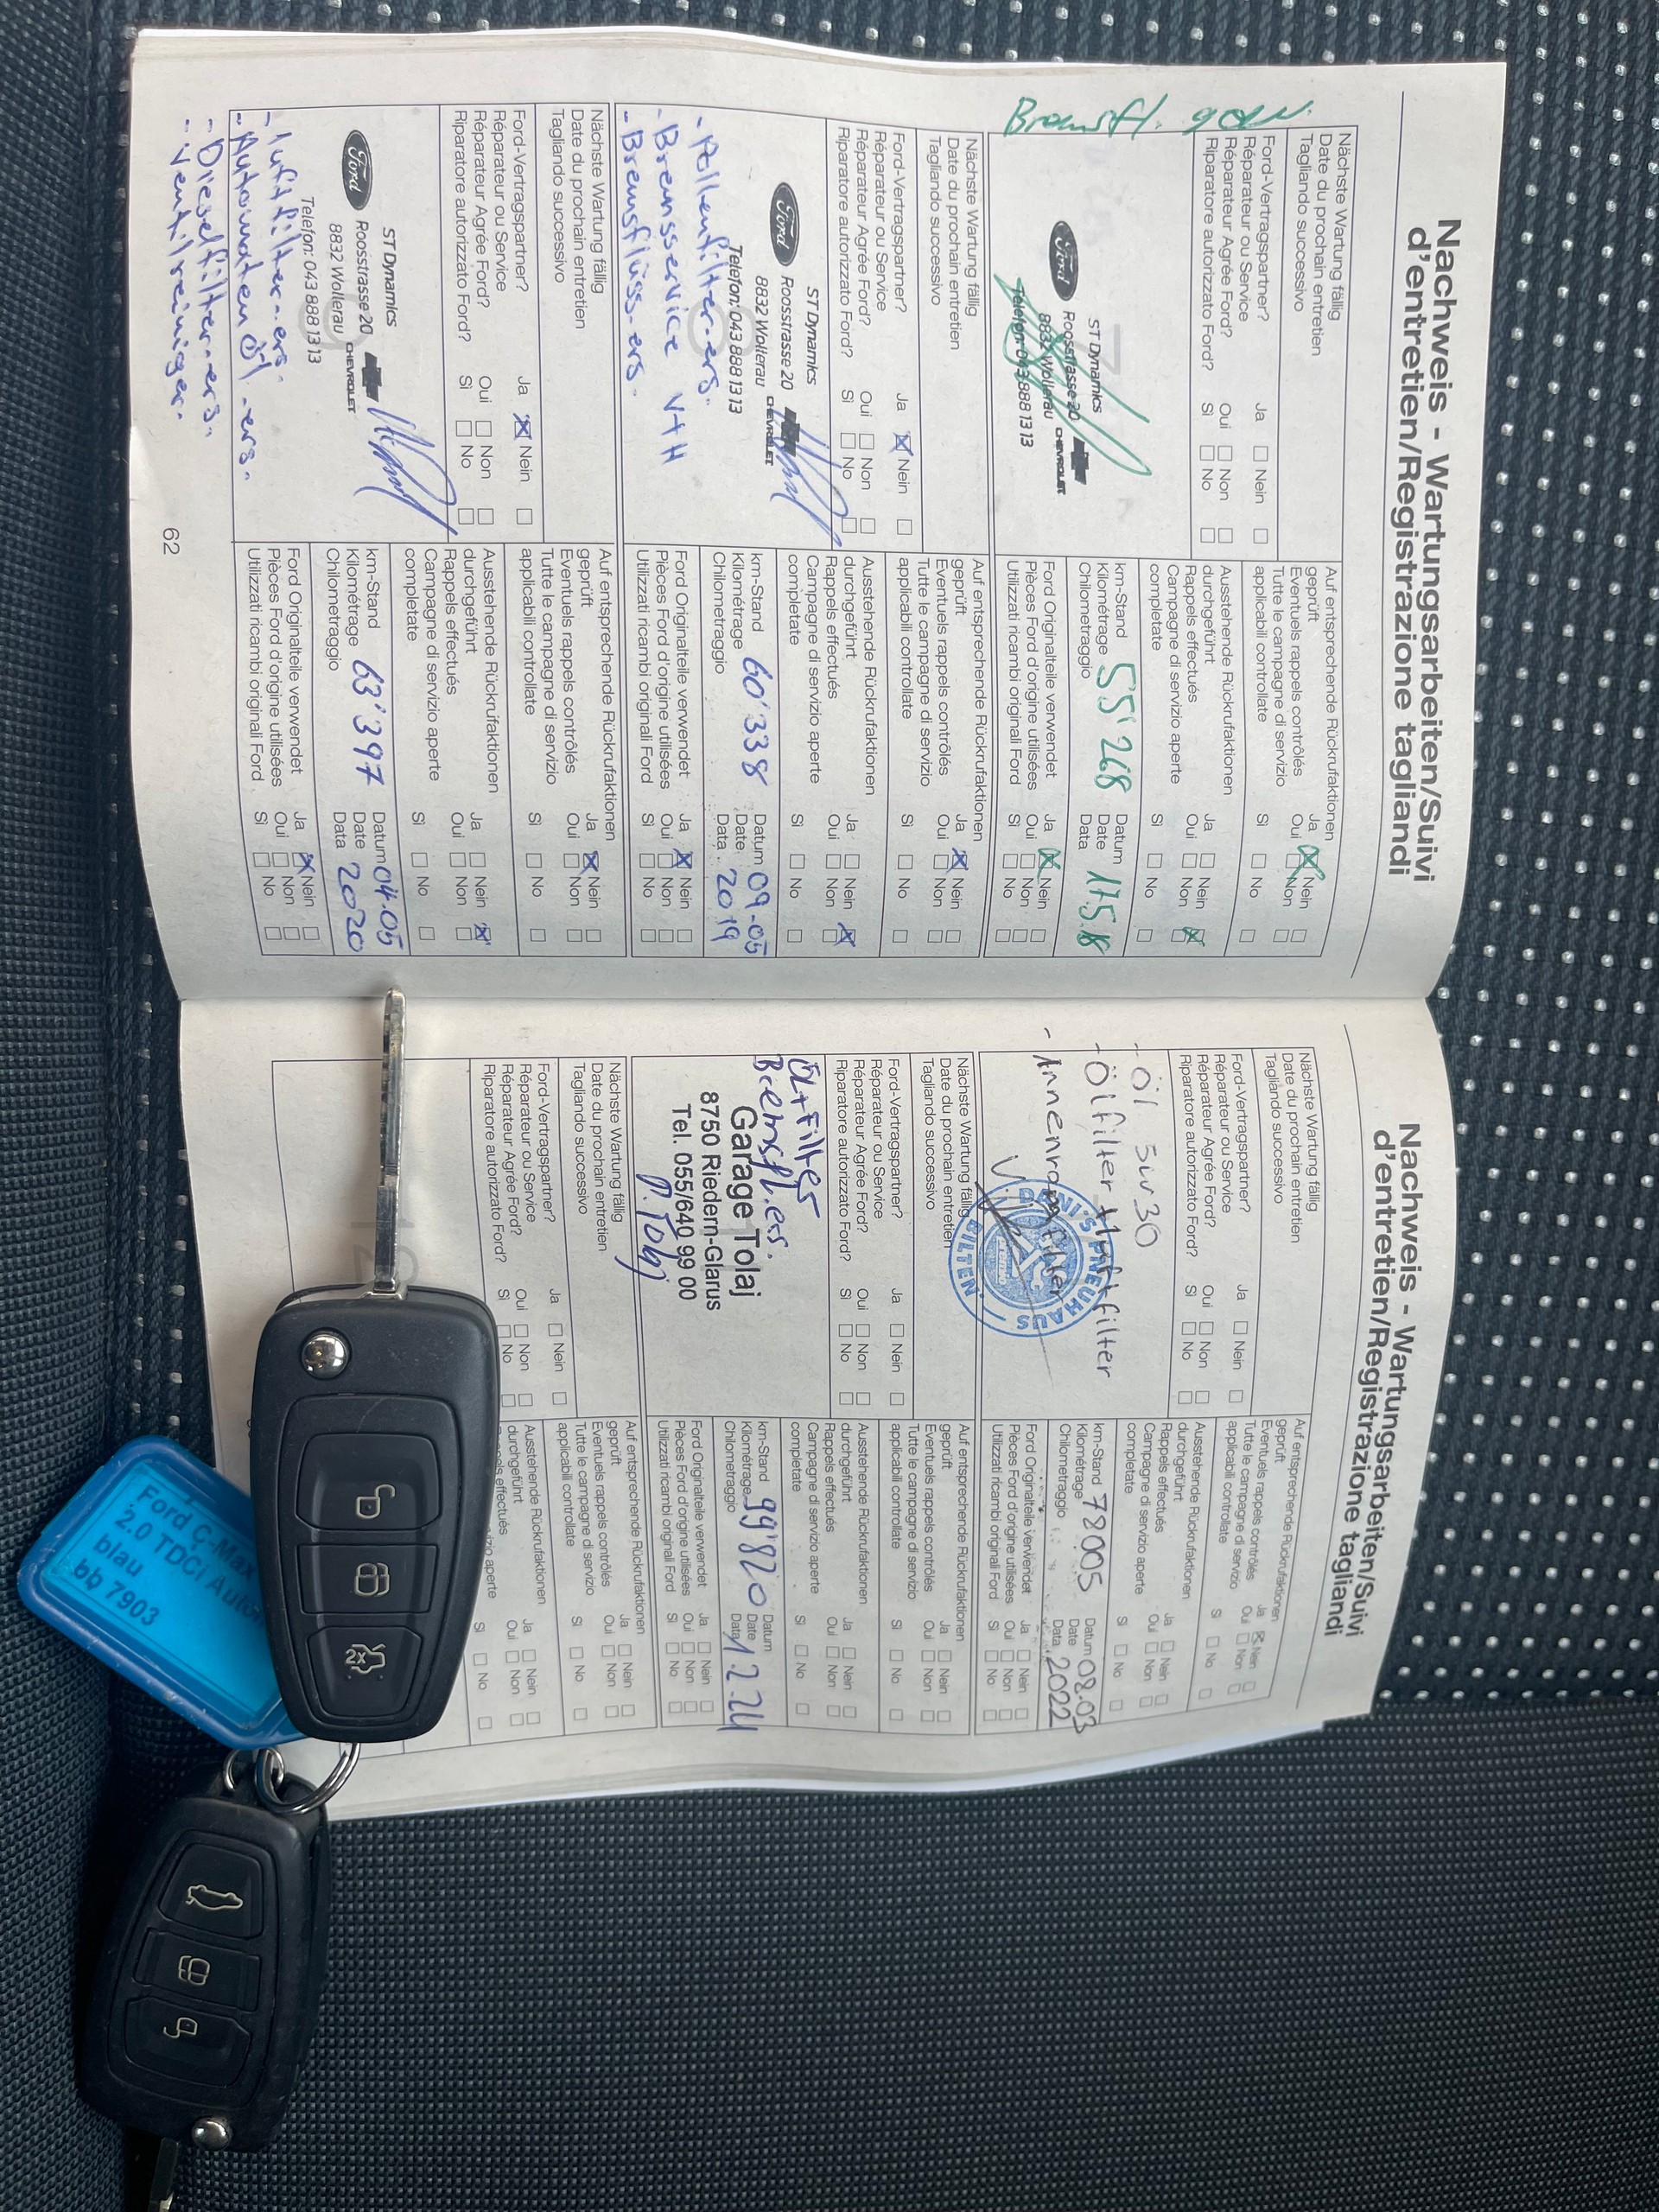 Nachweis - Wartungsarbeiten/Suivi
d'entretien/Registrazione tagliandi
Nächste Wartung fällig
Date du prochain entretien
Tagliando successivo
Ford-Vertragspartner?
Réparateur ou Service
Réparateur Agrée Ford?
Riparatore autorizzato Ford?
Ja Nein
Oui Non
Sì No
Bremsfl.
ST Dynamics
Ford
Roosstrasse 20
8832 Wollerau
CHEVROLET
Telefon: 043 888 13 13
Auf entsprechende Rückrufaktionen
geprüft
Eventuels rappels contrôlés
Tutte le campagne di servizio
applicabili controllate
Ja Nein
Oui Non
Sì No
Ausstehende Rückrufaktionen
durchgeführt
Rappels effectués
Campagne di servizio aperte
completate
Ja Nein
Oui Non
Sì No
km-Stand
Kilométrage 55'268
Chilometraggio
Datum
Date 17.5.18
Data
Ford Originalteile verwendet
Pièces Ford d'origine utilisées
Utilizzati ricambi originali Ford
Ja Nein
Oui Non
Sì No
Nächste Wartung fällig
Date du prochain entretien
Tagliando successivo
Ford-Vertragspartner?
Réparateur ou Service
Réparateur Agrée Ford?
Riparatore autorizzato Ford?
Ja Nein
Oui Non
Sì No
8
ST Dynamics
Ford
Roosstrasse 20
8832 Wollerau
CHEVROLET
Telefon: 043 888 13 13
- Pollenfilter-ers.
- Bremsservice V+H
- Bremsflüss-ers.
Auf entsprechende Rückrufaktionen
geprüft
Eventuels rappels contrôlés
Tutte le campagne di servizio
applicabili controllate
Ja Nein
Oui Non
Sì No
Ausstehende Rückrufaktionen
durchgeführt
Rappels effectués
Campagne di servizio aperte
completate
Ja Nein
Oui Non
Sì No
km-Stand
Kilométrage 60'338
Chilometraggio
Datum 09.05
Date
Data 2019
Ford Originalteile verwendet
Pièces Ford d'origine utilisées
Utilizzati ricambi originali Ford
Ja Nein
Oui Non
Sì No
Nächste Wartung fällig
Date du prochain entretien
Tagliando successivo
Ford-Vertragspartner?
Réparateur ou Service
Réparateur Agrée Ford?
Riparatore autorizzato Ford?
Ja Nein
Oui Non
Sì No
9
ST Dynamics
Ford
Roosstrasse 20
8832 Wollerau
CHEVROLET
Telefon: 043 888 13 13
- Luftfilter-ers.
- Automatenöl-ers.
- Dieselfilter-ers.
- Ventilreiniger.
Auf entsprechende Rückrufaktionen
geprüft
Eventuels rappels contrôlés
Tutte le campagne di servizio
applicabili controllate
Ja Nein
Oui Non
Sì No
Ausstehende Rückrufaktionen
durchgeführt
Rappels effectués
Campagne di servizio aperte
completate
Ja Nein
Oui Non
Sì No
km-Stand
Kilométrage 63'397
Chilometraggio
Datum 04.05
Date
Data 2020
Ford Originalteile verwendet
Pièces Ford d'origine utilisées
Utilizzati ricambi originali Ford
Ja Nein
Oui Non
Sì No
62
Nachweis - Wartungsarbeiten/Suivi
d'entretien/Registrazione tagliandi
Nächste Wartung fällig
Date du prochain entretien
Tagliando successivo
Ford-Vertragspartner?
Réparateur ou Service
Réparateur Agrée Ford?
Riparatore autorizzato Ford?
Ja Nein
Oui Non
Sì No
- Öl 5w30
- Ölfilter + Luftfilter
- Innenraumfilter
DENI'S PNEUHAUS
BILTEN
Auf entsprechende Rückrufaktionen
geprüft
Eventuels rappels contrôlés
Tutte le campagne di servizio
applicabili controllate
Ja Nein
Oui Non
Sì No
Ausstehende Rückrufaktionen
durchgeführt
Rappels effectués
Campagne di servizio aperte
completate
Ja Nein
Oui Non
Sì No
km-Stand 78005
Kilométrage
Chilometraggio
Datum 08.03
Date
Data 2022
Ford Originalteile verwendet
Pièces Ford d'origine utilisées
Utilizzati ricambi originali Ford
Ja Nein
Oui Non
Sì No
Nächste Wartung fällig
Date du prochain entretien
Tagliando successivo
Ford-Vertragspartner?
Réparateur ou Service
Réparateur Agrée Ford?
Riparatore autorizzato Ford?
Ja Nein
Oui Non
Sì No
ÖL+Filter
Bremsfl.ers.
Garage Tolaj
8750 Riedern-Glarus
Tel. 055/640 99 00
Auf entsprechende Rückrufaktionen
geprüft
Eventuels rappels contrôlés
Tutte le campagne di servizio
applicabili controllate
Ja Nein
Oui Non
Sì No
Ausstehende Rückrufaktionen
durchgeführt
Rappels effectués
Campagne di servizio aperte
completate
Ja Nein
Oui Non
Sì No
km-Stand
Kilométrage 99'820
Chilometraggio
Datum
Date
Data 1.2.24
Ford Originalteile verwendet
Pièces Ford d'origine utilisées
Utilizzati ricambi originali Ford
Ja Nein
Oui Non
Sì No
Nächste Wartung fällig
Date du prochain entretien
Tagliando successivo
Ford-Vertragspartner?
Réparateur ou Service
Réparateur Agrée Ford?
Riparatore autorizzato Ford?
Ja Nein
Oui Non
Sì No
12
Auf entsprechende Rückrufaktionen
geprüft
Eventuels rappels contrôlés
Tutte le campagne di servizio
applicabili controllate
Ja Nein
Oui Non
Sì No
Ausstehende Rückrufaktionen
durchgeführt
effectués
aperte
Ja Nein
Oui Non
Sì No
Ford C-Max
2.0 TDCi Auto
blau
bb 7903
2x